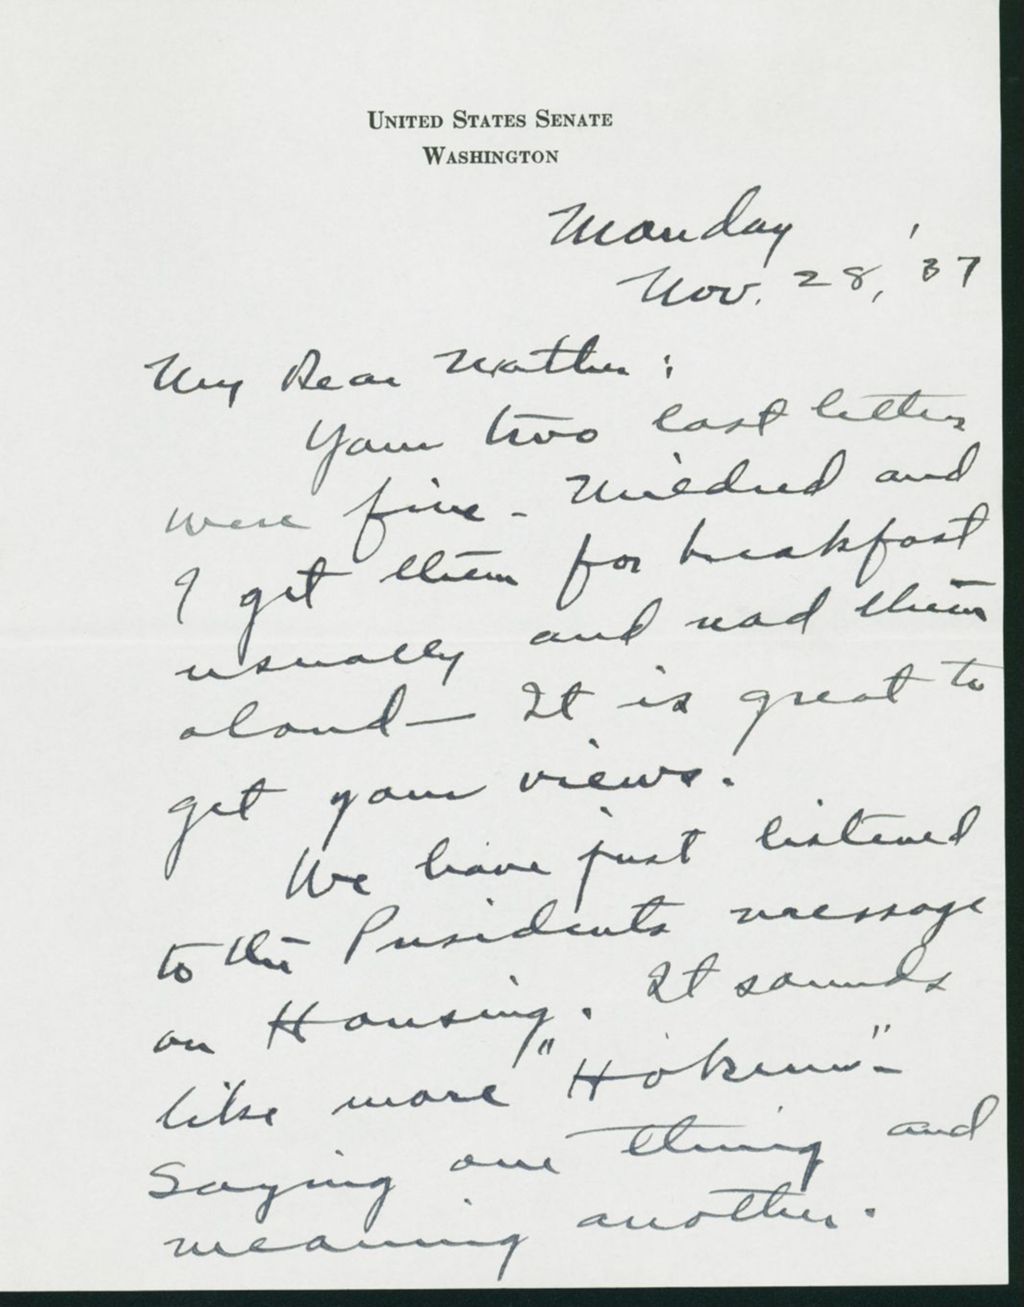 UNITED STATES SENATE
WASHINGTON
Monday
Nov. 28, '37
My Dear Mother:
Your two last letters
were fine - Mildred and
I get them for breakfast
usually and read them
aloud - It is great to
get your views.
We have just listened
to the Presidents message
on Housing. It sounds
like more "Hokum" -
Saying one thing and
meaning another.